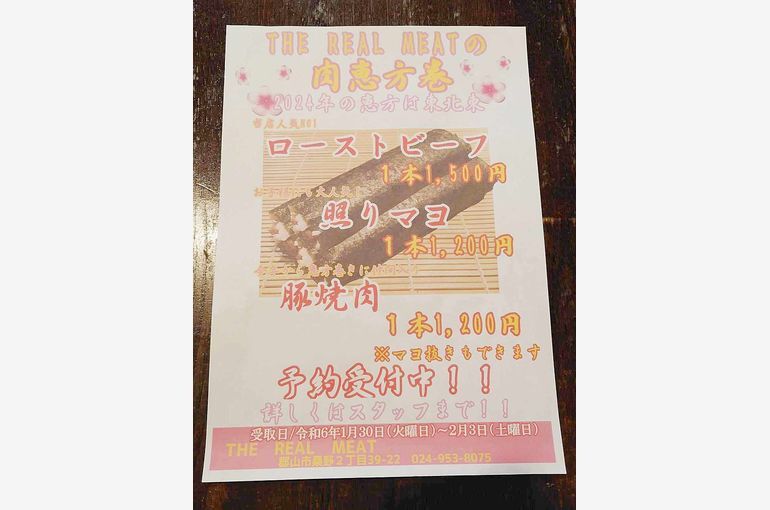 THE REAL MEATの
肉恵方巻
2024年の恵方は東北東
当店人気NO1
ローストビーフ
1本1,500円
照りマヨ
1本1,200円
豚焼肉
1本1,200円
※マヨ抜きもできます
予約受付中！！
詳しくはスタッフまで！！
受取日/令和6年1月30日(火曜日)～2月3日(土曜日)
THE REAL MEAT
郡山市桑野２丁目39-22 024-953-8075